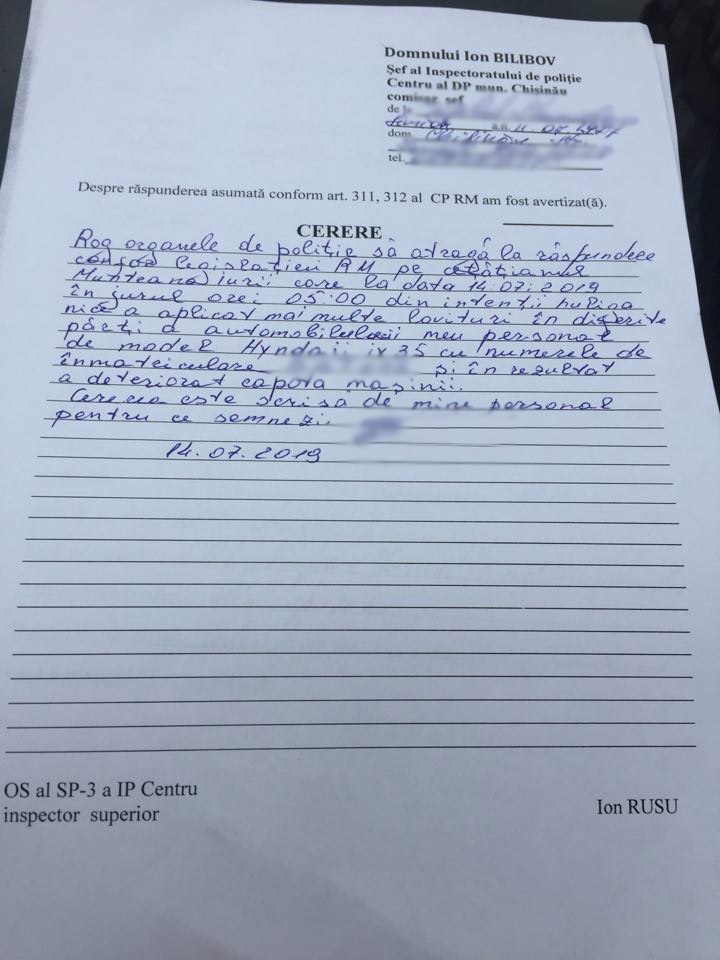 Domnului Ion BILIBOV
Șef al Inspectoratului de poliție
Centru al DP mun. Chișinău
comisar șef
de
a.n. 11.07.1977
dom
tel.
Despre răspunderea asumată conform art. 311, 312 al CP RM am fost avertizat(ă).
CERERE
Rog organele de poliție să atragă la răspundere
confor legislației RM pe cetățianul
Munteanu Iurii care la data 14.07.2019
în jurul orei 05:00 din intenții huliga
nice a aplicat mai multe lovituri în diferite
părți a automobilului meu personal
de model Hyndaii ix35 cu numerele de
înmatriculare și în rezultat
a deteriorat capota mașinii.
Cererea este scrisă de mine personal
pentru ce semnezi.
14.07.2019
OS al SP-3 a IP Centru
inspector superior
Ion RUSU